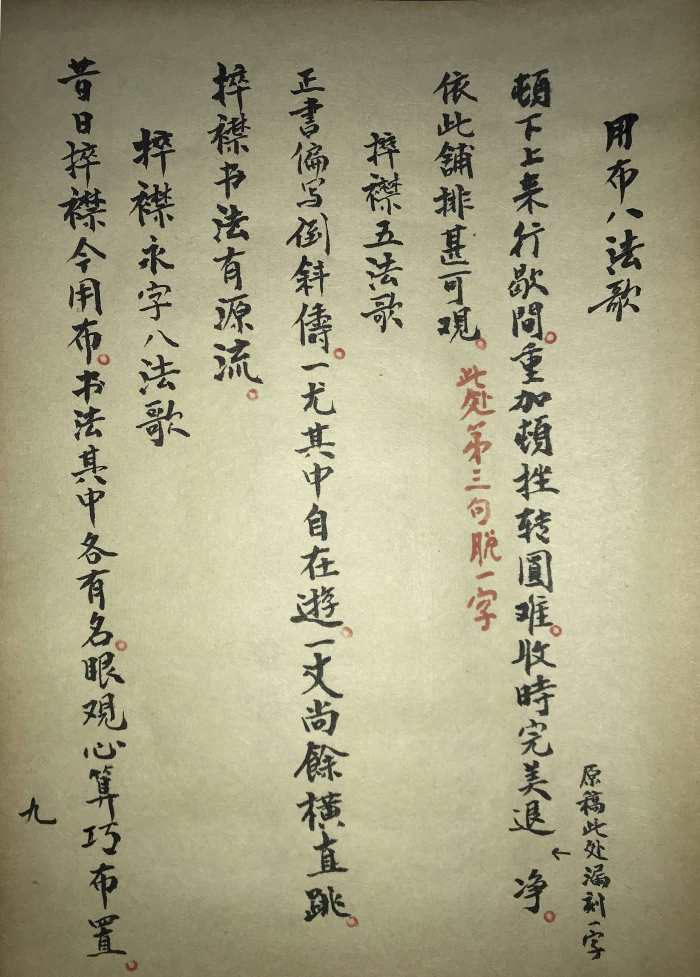 用布八法歌
原稿此处漏刻一字
頓下上来行歇間。重加頓挫转圓难。收時完美退←净。
依此舖排甚可观。此处第三句脱一字
捽襟五法歌
正書偏写倒斜儔。一尤其中自在遊。一丈尚餘横直跳。
捽襟书法有源流。
捽襟永字八法歌
昔日捽襟今用布。书法其中各有名。眼观心算巧布置。
九